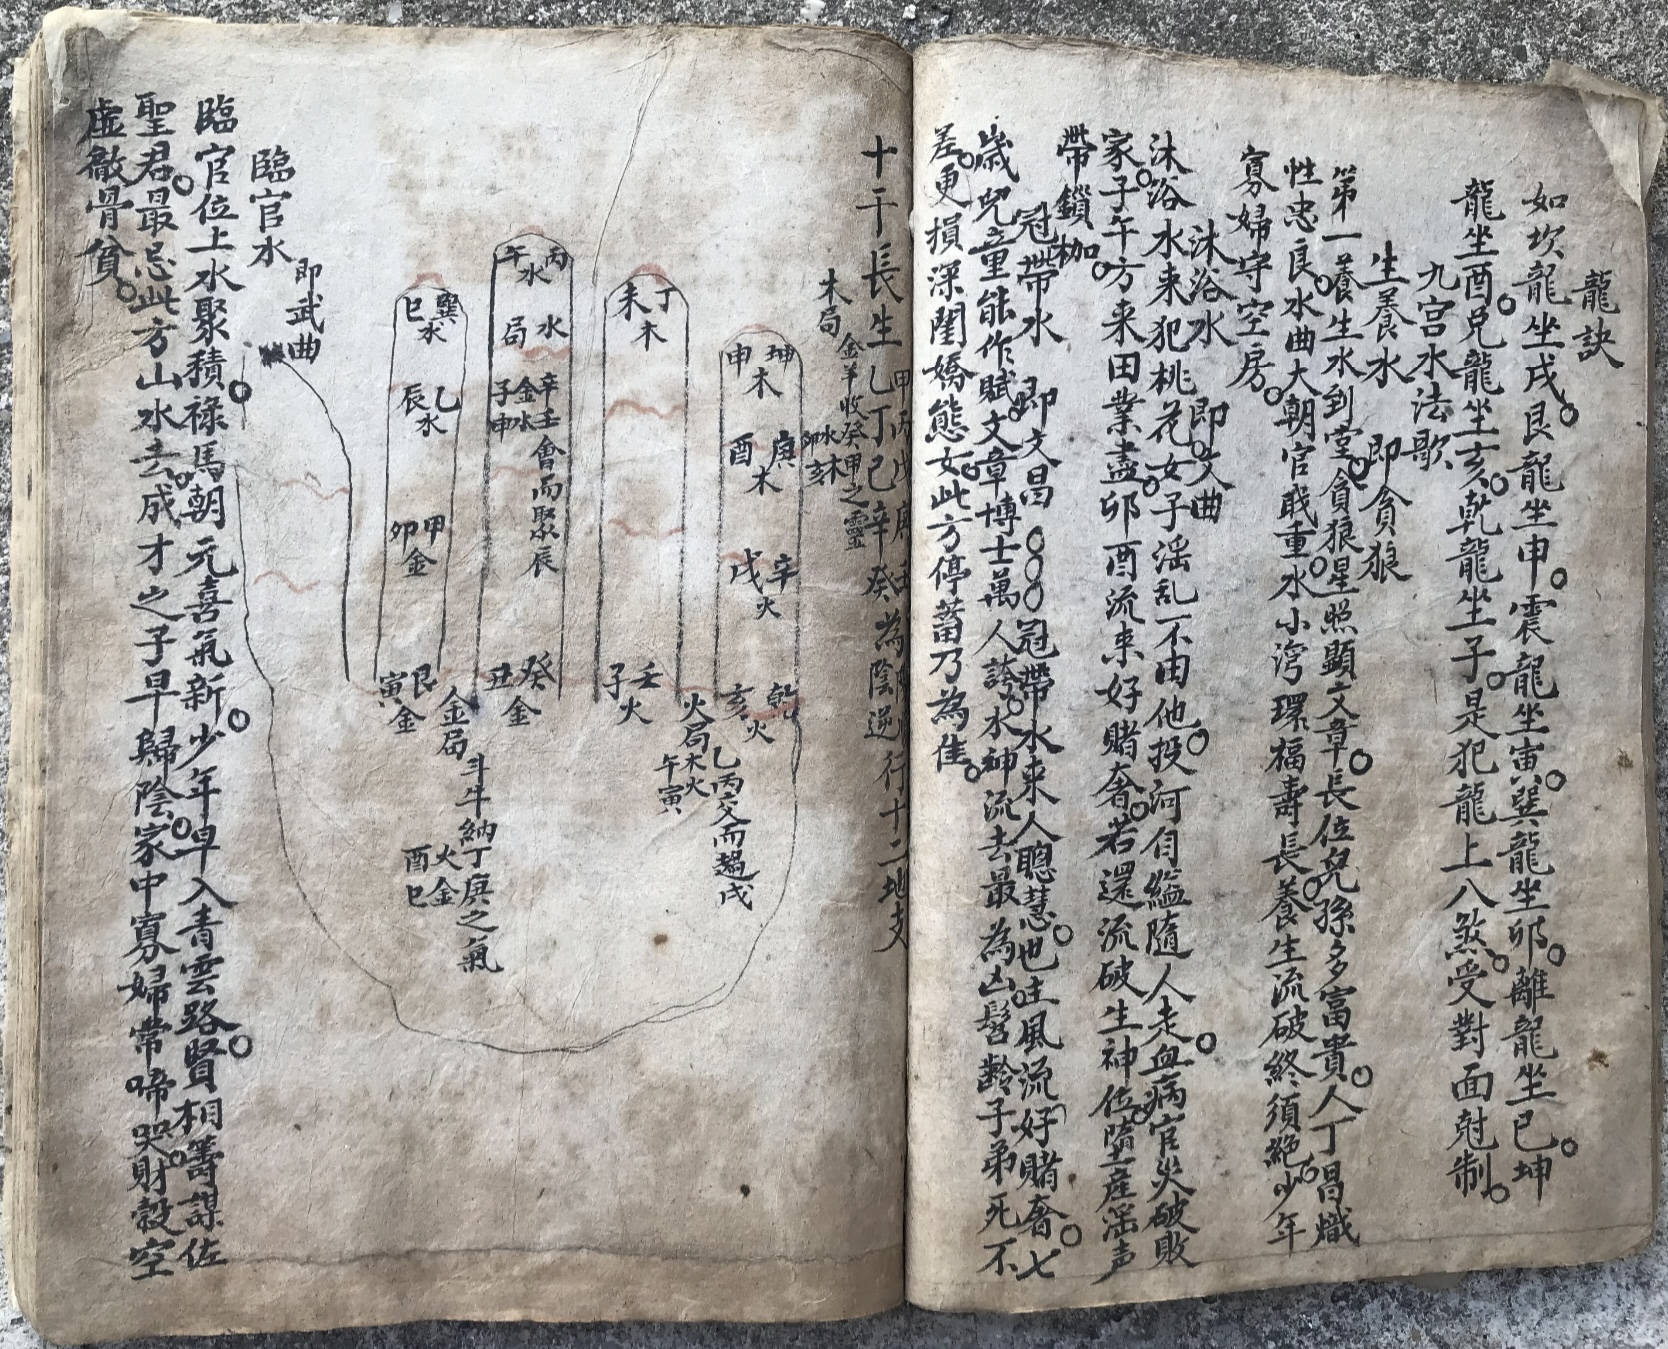 龍訣
如坎龍坐戌。艮龍坐申。震龍坐寅。巽龍坐卯。離龍坐巳。坤
龍坐酉。兌龍坐亥。乾龍坐子。是犯龍上八煞。受對面尅制。
九宮水法歌
生養水 即貪狼
第一養生水到堂。貪狼星照顯文章。長位兒孫多富貴。人丁昌熾
性忠良。水曲大朝官戝重。水小灣環福壽長。養生流破終須絕。少年
寡婦守空房。
沐浴水 即文曲
沐浴水来犯桃花。女子滛乱不由他。投河自縊隨人走。血病官災破敗
家。子午方来田業盡。卯酉流来好賭奢。若還流破生神位。墮產滛声
帶鎖枷。
冠帶水 即文昌
冠帶水来人聰慧。也主風流好賭奢。七
歲兒童能作賦。文章博士萬人誇。水神流去最為凶。髫齡子弟死不
差。更損深閨嬌態女。此方停蓄乃為佳。
十干長生
乙丁己辛癸為陰逆行十二地支
木局
金羊收癸甲之靈
水木
卯亥
坤申木
庚酉木
辛戌火
乾亥火
丁未木
壬子火
火局
木火
午寅
乙丙交而趨戌
丙午水
水局
辛壬會而聚辰
金水
子申
癸丑金
巽巳水
乙辰水
甲卯金
艮寅金
金局
斗牛納丁庚之氣
火金
酉巳
臨官水 即武曲
臨官位上水聚積。祿馬朝元喜氣新。少年早入青雲路。賢相籌謀佐
聖君。最忌此方山水去。成才之子早歸陰。家中寡婦常啼哭。財穀空
虛徹骨貧。